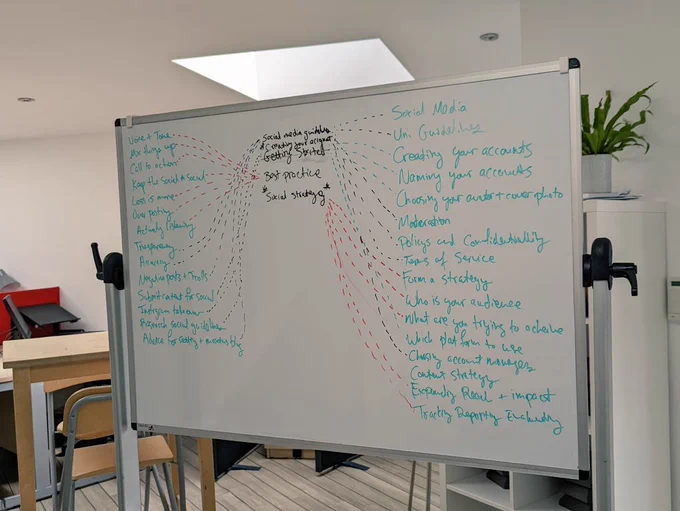 Voice + Tone
Mix things up
Call to action
Keep the Social in Social
Less is more
Over posting
Actively listening
Transparency
Accuracy
Negative posts + Trolls
Submit content for social
Instagram takeover
Research social guidelines
Advice for setting + monitoring
Social media guidelines
* Creating your account
Getting Started
Best practice
* Social strategy *
Social Media
Uni Guidelines
Creating your accounts
Naming your accounts
Choosing your avatar + cover photo
Moderation
Policys and Confidentiality
Terms of Service
Form a strategy
Who is your audience
What are you trying to acheive
Which platform to use
Choosing account managers
Content strategy
Expanding Reach + impact
Tracking Reporting Evaluating